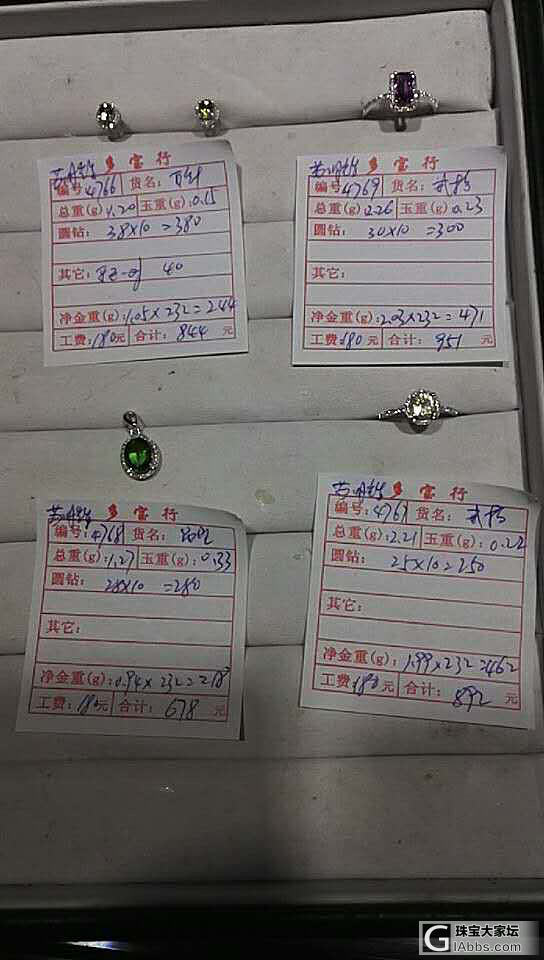 多宝行
编号:4766 货名:耳钉
总重(g):1.20 玉重(g):0.15
圆钻: 38×10=380
其它: 40
净金重(g):1.05×232=244
工费:180元 合计: 844 元
多宝行
编号:4769 货名:戒指
总重(g):2.26 玉重(g):0.23
圆钻: 30×10=300
其它:
净金重(g):2.03×232=471
工费:180元 合计: 951 元
多宝行
编号:4768 货名:
总重(g):1.27 玉重(g):0.33
圆钻: 28×10=280
其它:
净金重(g):0.94×232=218
工费:180元 合计: 678 元
多宝行
编号:4767 货名:戒指
总重(g):2.21 玉重(g):0.22
圆钻: 25×10=250
其它:
净金重(g):1.99×232=462
工费:180元 合计: 892 元
G 珠宝大家坛
GIAbbs.com